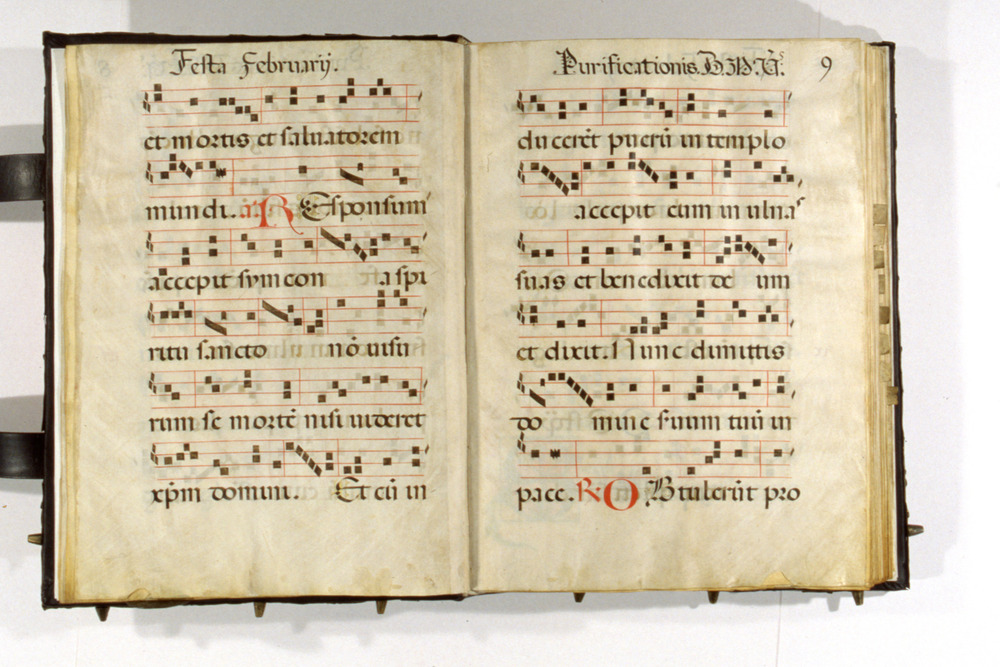 Festa Februarij.
et mortis et saluatorem
mundi. a. REsponsum
accepit symeon a spi
ritu sancto nō uisu
rum se mortē nisi uideret
xp̄m domini. Et cū in
Purificationis. B. M. V. 9
ducerēt puerū in templo
accepit eum in ulnas
suas et benedixit de um
et dixit. Nunc dimittis
do nunc seruum tuū in
pace. R. OBtulerūt pro